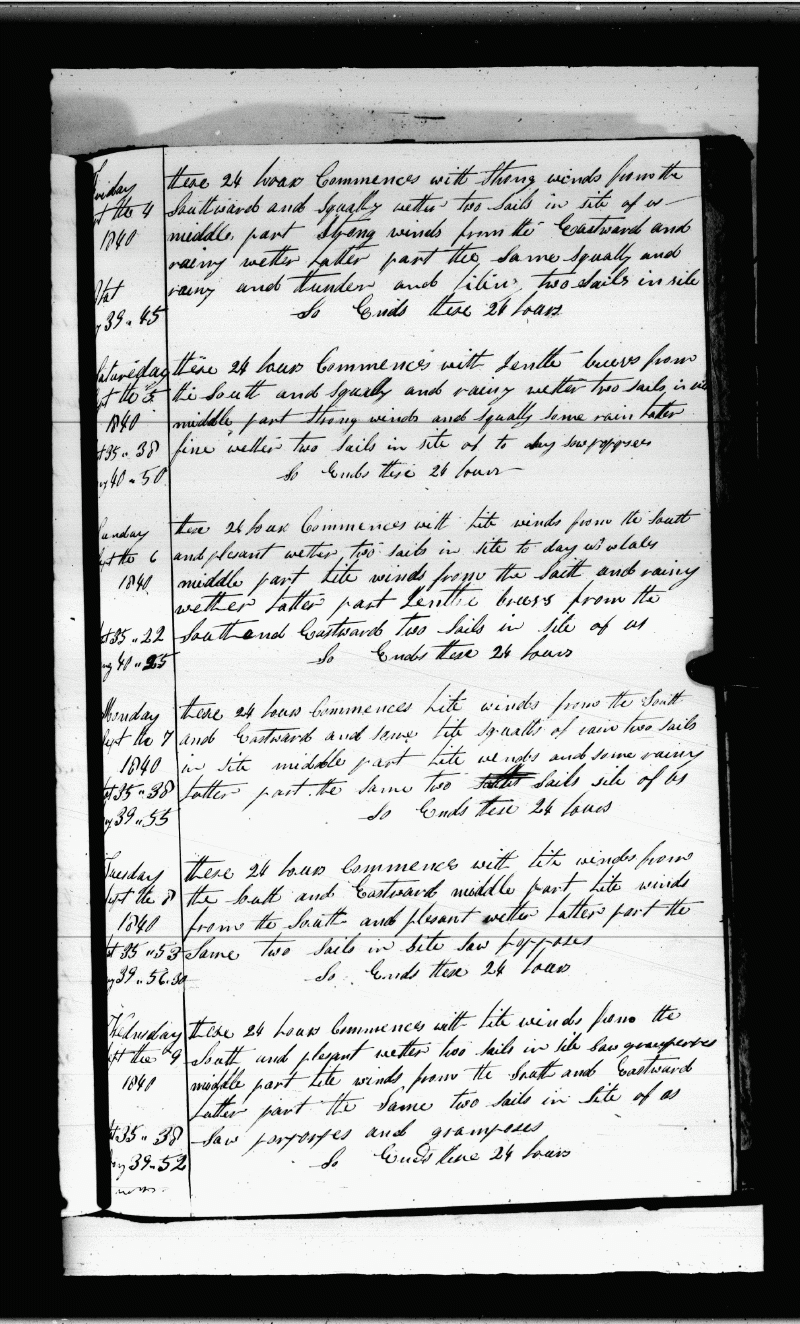 Friday
Sept the 4
1840
Lat
Long 39 " 45
these 24 hours Commences with Strong winds from the
Southward and Squally wether two Sails in site of us
middle part Strong winds from the Eastward and
rainy wether Latter part the Same Squally and
rainy and thunder and two Sails in site
So Ends these 24 hours
Saturday
Sept the 5
1840
Lat 35 " 38
Long 40 " 50
these 24 hours Commences with Jentle breers from
the South and Squally and rainy wether two Sails in
middle part Strong winds and Squally some rain Later
fine wether two Sails in site of to day saw popposes
So Ends these 24 hours
Sunday
Sept the 6
1840
Lat 35 " 22
Long 40 " 25
these 24 hours Commences with Lite winds from the South
and plesant wether two Sails in site to day no whales
middle part Lite winds from the South and rainy
wether Latter part Jentle breers from the
South and Eastward two Sails in site of us
So Ends these 24 hours
Monday
Sept the 7
1840
Lat 35 " 38
Long 39 " 55
these 24 hours Commences Lite winds from the South
and Eastward and some Lite Squalls of rain two Sails
in site middle part Lite winds and some rainy
Latter part the same two Sails site of us
So Ends these 24 hours
Tuesday
Sept the 8
1840
Lat 35 " 53
Long 39 " 56 " 30
these 24 hours Commences with Lite winds from
the South and Eastward middle part Lite winds
from the South and plesant wether Latter part the
Same two Sails in Site Saw popposes
So Ends these 24 hours
Wednesday
Sept the 9
1840
Lat 35 " 38
Long 39 " 52
these 24 hours Commences with Lite winds from the
South and plesant wether two Sails in Site Saw
middle part Lite winds from the South and Eastward
Latter part the Same two Sails in Site of us
Saw porposes and gramposes
So Ends these 24 hours